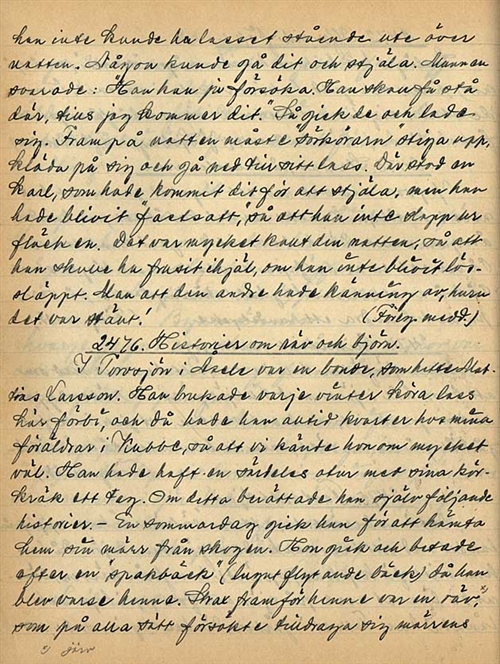 han inte kunde ha lasset stående ute över
natten. Någon kunde gå dit och stjäla. Mannen
svarade: "Han kan ju försöka. Han skau få stå
där, tius jag kommer dit." Så gick de och lade
sig. Frampå natten måste "sörkörarn" stiga upp,
kläda på sig och gå ned till sitt lass. Där stod en
karl, som hade kommit dit för att stjäla, men han
hade blivit "fastsatt," så att han inte slapp ur
fläcken. Det var mycket kallt den natten, så att
han skulle ha frusit ihjäl, om han inte blivit lös-
släppt. Man att den andre hade känning av, huru
det var ställt! (Föreg. medd.)
2476. Historier om räv och björn.
I Torvsjön i Åsele var en bonde, som hette Mat-
tias Larsson. Han brukade varje vinter köra lass
här förbi, och då hade han alltid kvarter hos mina
föräldrar i Kubbe, så att vi kände honom mycket
väl. Han hade haft en särdeles otur med sina kör-
kräk ett tag. Om detta berättade han själv följande
historier. – En sommardag gick han för att hämta
hem sin märr från skogen. Hon gick och betade
efter en "spakbäck" (lugnt flytande bäck) då han
blev varse henne. Strax framför henne var en räv,¹⁾
som på alla sätt försökte tilldraga sig märrens
¹⁾ järv